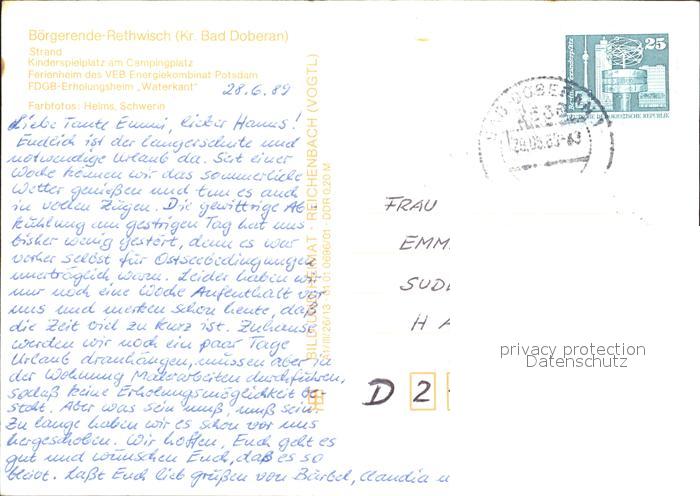 Börgerende-Rethwisch (Kr. Bad Doberan)
Strand
Kinderspielplatz am Campingplatz
Ferienheim des VEB Energiekombinat Potsdam
FDGB-Erholungsheim „Waterkant"
Farbfotos: Helms, Schwerin
28.6.89
Liebe Tante Emmi, lieber Hanns!
Endlich ist der langersehnte und
notwendige Urlaub da. Seit einer
Woche können wir das sommerliche
Wetter genießen und tun es auch
in vollen Zügen. Die gewittrige Ab-
kühlung am gestrigen Tag hat uns
bisher wenig gestört, denn es war
vorher selbst für Ostseebedingungen
unerträglich warm. Leider haben wir
nur noch eine Woche Aufenthalt vor
uns und merken schon heute, daß
die Zeit viel zu kurz ist. Zuhause
werden wir noch ein paar Tage
Urlaub dranhängen, müssen aber in
der Wohnung Malerarbeiten durchführen,
sodaß keine Erholungsmöglichkeit be-
steht. Aber was sein muß, muß sein.
Zu lange haben wir es schon vor uns
hergeschoben. Wir hoffen, Euch geht es
gut und wünschen Euch, daß es so
bleibt. Laßt Euch lieb grüßen von Bärbel, Claudia u
BILD UND HEIMAT · REICHENBACH (VOGTL)
DDR 0,20 M
25
DEUTSCHE DEMOKRATISCHE REPUBLIK
BAD DOBERAN 1
2560
FRAU
EMM
SUD
HA
D 2
privacy protection
Datenschutz